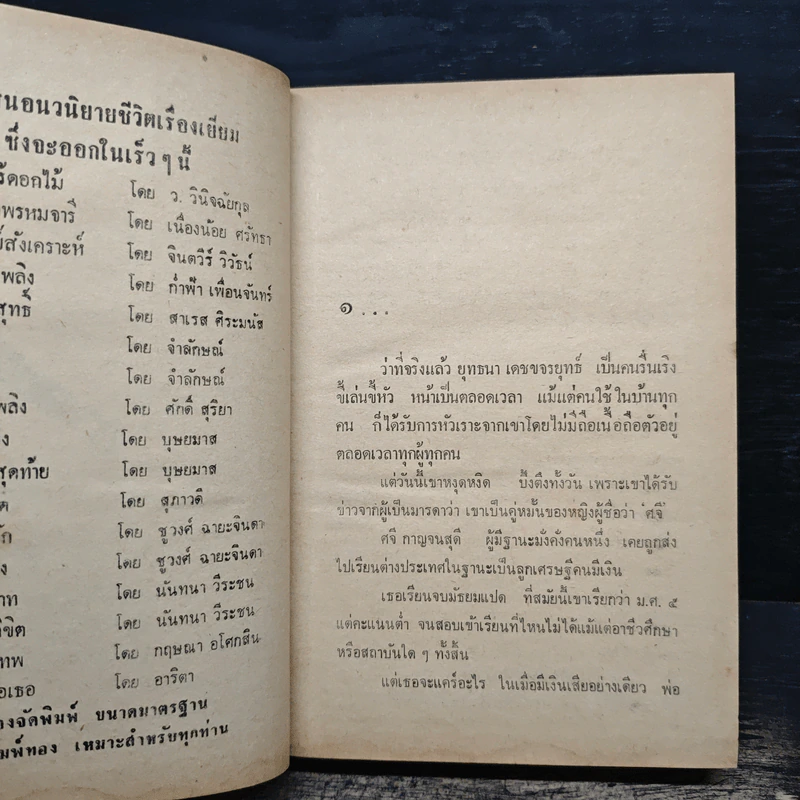 นอนวนิยายชีวิตเรื่องเยี่ยม
ซึ่งจะออกในเร็ว ๆ นี้
ร้ดอกไม้ โดย ว. วินิจฉัยกุล
พรหมจารี โดย เนื่องน้อย ศรัทธา
์สังเคราะห์ โดย จินตวีร์ วิวัธน์
พลิง โดย ก่ำฟ้า เพื่อนจันทร์
สุทธิ์ โดย สาเรส ศิระมนัส
โดย จำลักษณ์
โดย จำลักษณ์
พลิง โดย ศักดิ์ สุริยา
ง โดย บุษยมาส
สุดท้าย โดย บุษยมาส
ต โดย สุภาวดี
ัก โดย ชูวงศ์ ฉายะจินดา
ง โดย ชูวงศ์ ฉายะจินดา
าท โดย นันทนา วีระชน
ิขิต โดย นันทนา วีระชน
ทพ โดย กฤษณา อโศกสิน
อเธอ โดย อาริตา
างจัดพิมพ์ ขนาดมาตรฐาน
มพ์ทอง เหมาะสำหรับทุกท่าน
๑ ...
ว่าที่จริงแล้ว ยุทธนา เดชขจรยุทธ์ เป็นคนรื่นเริง
ขี้เล่นขี้หัว หน้าเป็นตลอดเวลา แม้แต่คนใช้ในบ้านทุก
คน ก็ได้รับการหัวเราะจากเขาโดยไม่มีถือเนื้อถือตัวอยู่
ตลอดเวลาทุกผู้ทุกคน
แต่วันนี้เขาหงุดหงิด ปั้งตึงทั้งวัน เพราะเขาได้รับ
ข่าวจากผู้เป็นมารดาว่า เขาเป็นคู่หมั้นของหญิงผู้ชื่อว่า ‘ศจี’
ศจี กาญจนสุดี ผู้มีฐานะมั่งคั่งคนหนึ่ง เคยถูกส่ง
ไปเรียนต่างประเทศในฐานะเป็นลูกเศรษฐีคนมีเงิน
เธอเรียนจบมัธยมแปด ที่สมัยนี้เขาเรียกว่า ม.ศ. ๕
แต่คะแนนต่ำ จนสอบเข้าเรียนที่ไหนไม่ได้แม้แต่อาชีวศึกษา
หรือสถาบันใด ๆ ทั้งสิ้น
แต่เธอจะแคร์อะไร ในเมื่อมีเงินเสียอย่างเดียว พ่อ